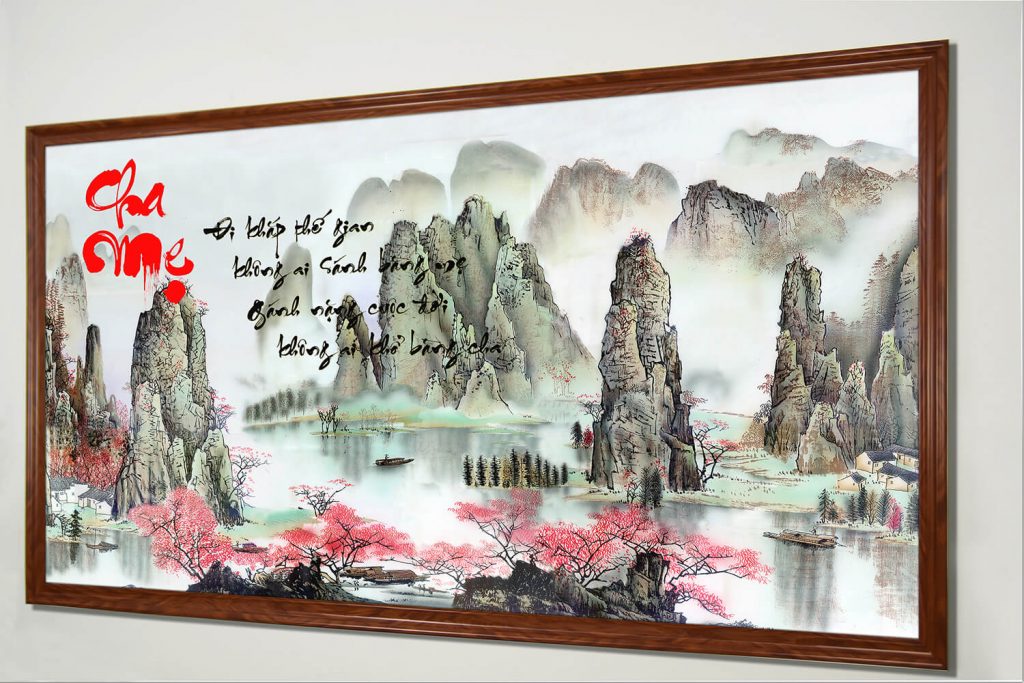 Cha
Mẹ
Đi khắp thế gian
không ai sánh bằng mẹ
Gánh nặng cuộc đời
không ai khổ bằng cha